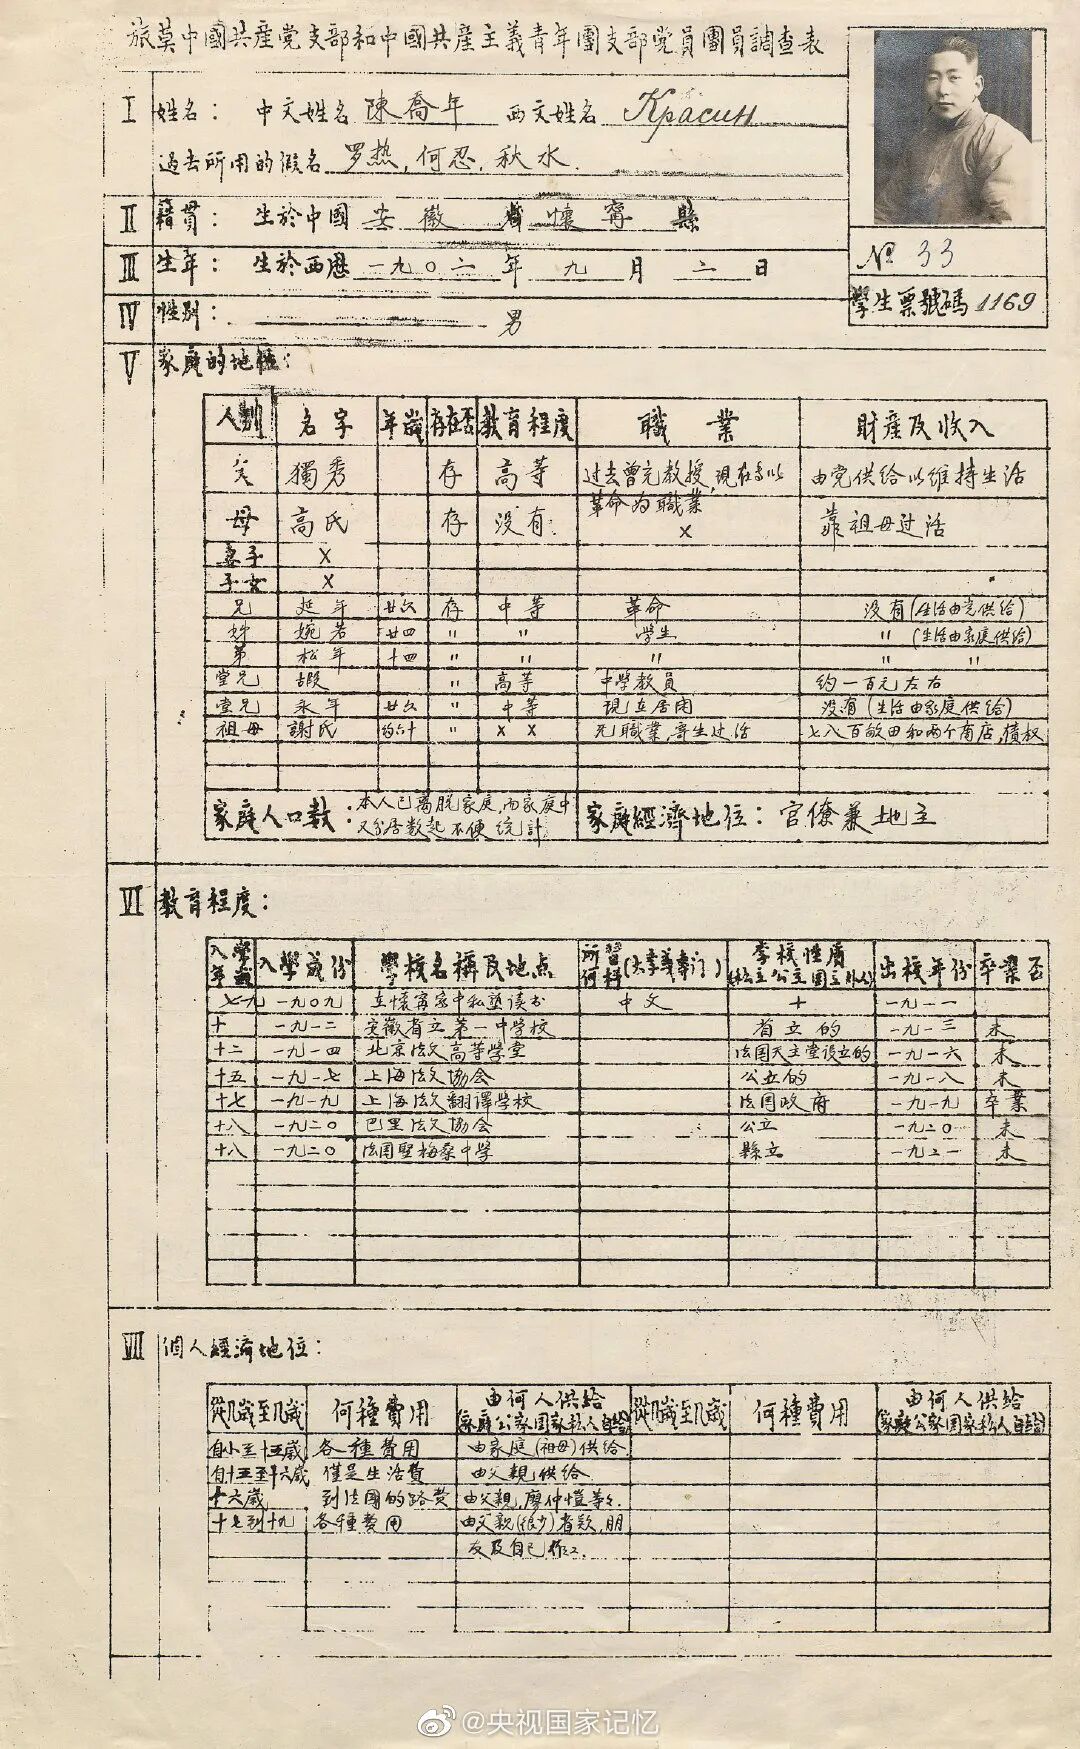 旅莫中國共產党支部和中國共產主義青年團支部党員團員調查表
I 姓名： 中文姓名 陳喬年 西文姓名 Красин
過去所用的假名 罗热, 何忍, 秋水.
II 籍貫： 生於中國 安徽 省 懷寧 縣
III 生年： 生於西歷 一九〇二 年 九 月 二 日
IV 性别： 男
№ 33
學生票號碼 1169
V 家庭的地位：
人别 名字 年歲 存在否 教育程度 職業 財產及收入
父 獨秀 存 高等 过去曾充教授, 現在專以革命为職業 由党供给以维持生活
母 高氏 存 没有 × 靠祖母过活
妻子 ×
子女 ×
兄 延年 廿六 存 中等 革命 没有(生活由党供给)
姊 婉若 廿四 〃 〃 学生 〃 (生活由家庭供给)
弟 松年 十四 〃 〃 〃 〃 〃
堂兄 遐 〃 高等 中學教員 约一百元左右
堂兄 永年 廿六 〃 中等 現在居闭 没有(生活由家庭供给)
祖母 謝氏 约六十 〃 × × 无職業, 寄生过活 七八百畝田和两个商店, 債权
家庭人口数： 本人已离脱家庭, 而家庭中又分居数起不便统計
家庭經濟地位： 官僚兼地主
VI 教育程度：
入學年歲 入學年份 學校名稱及地点 所習何科(大學義專门) 学校性质(私立公立国立外人) 出校年份 卒業否
七九 一九〇九 在懷寧家中私塾读书 中文 十 一九一一
十 一九一二 安徽省立第一中学校 省立的 一九一三 未
十二 一九一四 北京法文高等学堂 法国天主堂設立的 一九一六 未
十五 一九一七 上海法文協会 公立的 一九一八 未
十七 一九一九 上海法文翻譯学校 法国政府 一九一九 卒業
十八 一九二〇 巴里法文協会 公立 一九二〇 未
十八 一九二〇 法国聖梅桑中学 縣立 一九二一 未
VII 個人經濟地位：
從几歲至几歲 何種費用 由何人供給(家庭公家国家私人自給) 從几歲至几歲 何種費用 由何人供給(家庭公家国家私人自給)
自小至十五歲 各種費用 由家庭(祖母)供给
自十五至十六歲 僅是生活費 由父親供给
十六歲 到法國的路費 由父親, 廖仲愷等.
十七到十九 各種費用 由父親(很少)者欵, 朋
友及自己作工.
@央视国家记忆